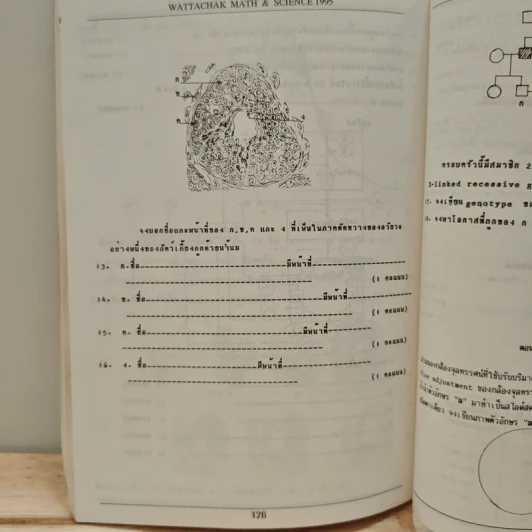 WATTACHAK MATH & SCIENCE 1995
ก.
ข.
ค.
จงบอกชื่อและหน้าที่ของ ก,ข,ค และ ง ที่เห็นในภาคตัดขวางของอวัยวะ
อย่างหนึ่งของสัตว์เลี้ยงลูกด้วยน้ำนม
13. ก.ชื่อ มีหน้าที่
(1 คะแนน)
14. ข. ชื่อ มีหน้าที่
(1 คะแนน)
15. ค. ชื่อ มีหน้าที่
(1 คะแนน)
16. ง. ชื่อ มีหน้าที่
(1 คะแนน)
126
ก
ครอบครัวนี้มีสมาชิก 2
-linked recessive g
17. จงเขียน genotype ขอ
จงหาโอกาสที่ลูกของ ก
ตอน
ของกล้องจุลทรรศน์ที่ใช้ปรับปริมา
fine adjustment ของกล้องจุลทรร
มาทำเป็นสไลด์สด
จงเขียนภาพตัวอักษร